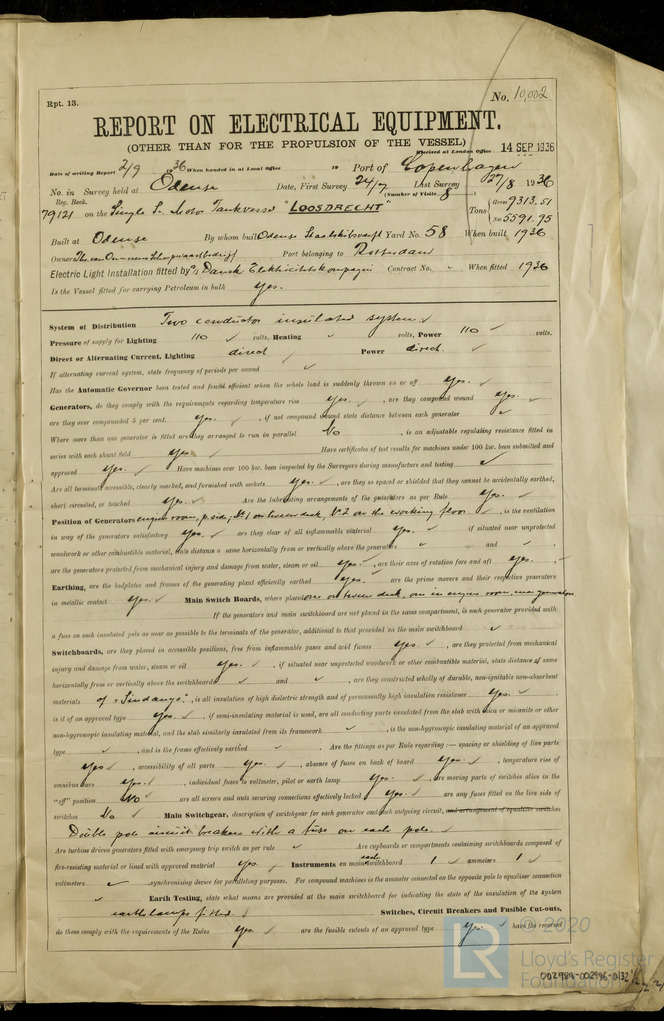 Rpt. 13.
No. 10,002
REPORT ON ELECTRICAL EQUIPMENT.
(OTHER THAN FOR THE PROPULSION OF THE VESSEL)
Received at London Office 14 SEP 1936
Date of writing Report 2/9 1936 When handed in at Local Office 19 Port of Copenhagen
No. in Survey held at Odense Date, First Survey 24/7 Last Survey 27/8 1936
Reg. Book. (Number of Visits 8)
79121 on the Single S. Motor Tankvessel "LOOSDRECHT" Tons { Gross 9313.51
Net 5591.95
Built at Odense By whom built Odense Staalskibsværft Yard No. 58 When built 1936
Owners Phs. van Ommeren Scheepvaartbedrijf Port belonging to Rotterdam
Electric Light Installation fitted by Dansk Elektricitets Kompagni Contract No. " When fitted 1936
Is the Vessel fitted for carrying Petroleum in bulk Yes.
System of Distribution Two conductor insulated system. ✓
Pressure of supply for Lighting 110 ✓ volts, Heating ✓ volts, Power 110 ✓ volts.
Direct or Alternating Current, Lighting direct ✓ Power direct. ✓
If alternating current system, state frequency of periods per second ✓
Has the Automatic Governor been tested and found efficient when the whole load is suddenly thrown on or off Yes. ✓
Generators, do they comply with the requirements regarding temperature rise Yes. ✓, are they compound wound Yes. ✓
are they over compounded 5 per cent. Yes. ✓, if not compound wound state distance between each generator ✓
Where more than one generator is fitted are they arranged to run in parallel No ✓, is an adjustable regulating resistance fitted in
series with each shunt field Yes. ✓ Have certificates of test results for machines under 100 kw. been submitted and
approved Yes. ✓ Have machines over 100 kw. been inspected by the Surveyors during manufacture and testing ✓
Are all terminals accessible, clearly marked, and furnished with sockets Yes. ✓, are they so spaced or shielded that they cannot be accidentally earthed,
short circuited, or touched Yes. ✓ Are the lubricating arrangements of the generators as per Rule Yes. ✓
Position of Generators engine room, p. side, No 1 on tween deck, No 2 on the working floor ✓, is the ventilation
in way of the generators satisfactory Yes. ✓ are they clear of all inflammable material Yes. ✓ if situated near unprotected
woodwork or other combustible material, state distance of same horizontally from or vertically above the generators ✓ and ✓,
are the generators protected from mechanical injury and damage from water, steam or oil Yes. ✓, are their axes of rotation fore and aft Yes. ✓
Earthing, are the bedplates and frames of the generating plant efficiently earthed Yes. ✓ are the prime movers and their respective generators
in metallic contact Yes. ✓ Main Switch Boards, where placed one on tween deck, one in engine room near generators
If the generators and main switchboard are not placed in the same compartment, is each generator provided with
a fuse on each insulated pole as near as possible to the terminals of the generator, additional to that provided on the main switchboard ✓
Switchboards, are they placed in accessible positions, free from inflammable gases and acid fumes Yes. ✓, are they protected from mechanical
injury and damage from water, steam or oil Yes. ✓, if situated near unprotected woodwork or other combustible material, state distance of same
horizontally from or vertically above the switchboards ✓ and ✓, are they constructed wholly of durable, non-ignitable non-absorbent
materials of "Sindanyo", is all insulation of high dielectric strength and of permanently high insulation resistance Yes. ✓
is it of an approved type Yes. ✓, if semi-insulating material is used, are all conducting parts insulated from the slab with mica or micanite or other
non-hygroscopic insulating material, and the slab similarly insulated from its framework ✓, is the non-hygroscopic insulating material of an approved
type ✓, and is the frame effectively earthed ✓ Are the fittings as per Rule regarding :— spacing or shielding of live parts
Yes ✓, accessibility of all parts Yes. ✓, absence of fuses on back of board Yes. ✓, temperature rise of
omnibus bars Yes. ✓, individual fuses to voltmeter, pilot or earth lamp Yes. ✓, are moving parts of switches alive in the
"off" position No ✓ are all screws and nuts securing connections effectively locked Yes. ✓ are any fuses fitted on the live side of
switches No ✓ Main Switchgear, description of switchgear for each generator and each outgoing circuit, and arrangement of equalizer switches
Double pole circuit breakers with a fuse on each pole. ✓
Are turbine driven generators fitted with emergency trip switch as per rule ✓ Are cupboards or compartments containing switchboards composed of
fire-resisting material or lined with approved material Yes. ✓ Instruments on main each switchboard 1 ✓ ammeters 1 ✓
voltmeters ✓ synchronising device for paralleling purposes. For compound machines is the ammeter connected on the opposite pole to equaliser connection
✓ Earth Testing, state what means are provided at the main switchboard for indicating the state of the insulation of the system
earth lamps fitted. Switches, Circuit Breakers and Fusible Cut-outs,
do these comply with the requirements of the Rules Yes. ✓ are the fusible cutouts of an approved type Yes. ✓ have the reversed
© 2020
LR Lloyd's Register
Foundation
002989-002996-0132 1/2